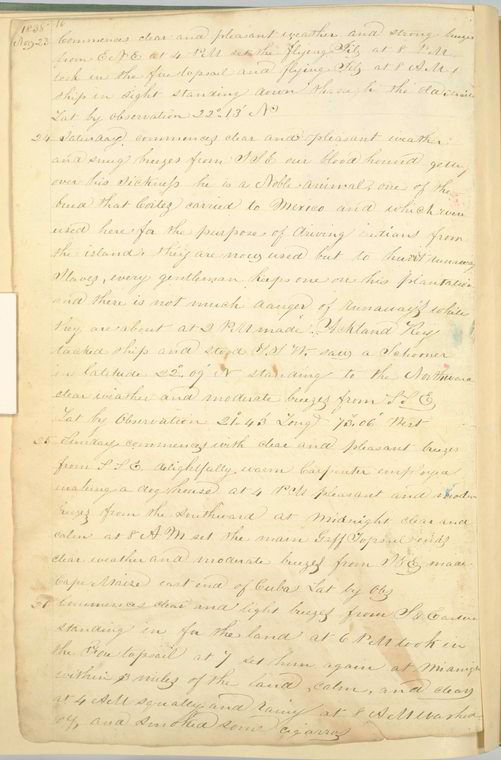 1838 16
Nov 23 Commences clear and pleasant weather and strong breezes
from E N E at 4 P.M set the flying Jib at 8 P.M
took in the fore topsail and flying Jib at 8 A.M a
ship in sight standing down
Lat by observation 22° 13' N°
24 Saturday commences clear and pleasant weather
and snug breezes from S S E our blood hound getting
over his Sickness he is a Noble animal, one of the
breed that Cortez carried to Mexico and which were
used here for the purpose of driving indians from
the island, they are now used but to hunt runaway
Slaves, every gentleman keeps one on his plantation
and there is not much danger of runaways while
they are about at 2 P.M made Ackland Key
tacked ship and stood saw a Schooner
in latitude 22° 09' N standing to the Northward
clear weather and moderate breezes from S S E
Lat by Observation 21° 43' Long 73° 06' West
25 Sunday commences with clear and pleasant breezes
from S S E delightfully warm Carpenter employed
making a dog house at 4 P.M pleasant and
breezes from the southward at midnight clear and
calm at 8 A M set the main Gaff Topsail ends
clear weather and moderate breezes from made
Cape Maize east end of Cuba Lat by Obs
26 Commences clear and light breezes from
standing in for the land at 6 P M took in
the Fore topsail at 7 set him again at Midnight
within 3 miles of the land, calm, and clear
at 4 A.M squally and rainy at 8 A M washed
off, and smoked some cigarros